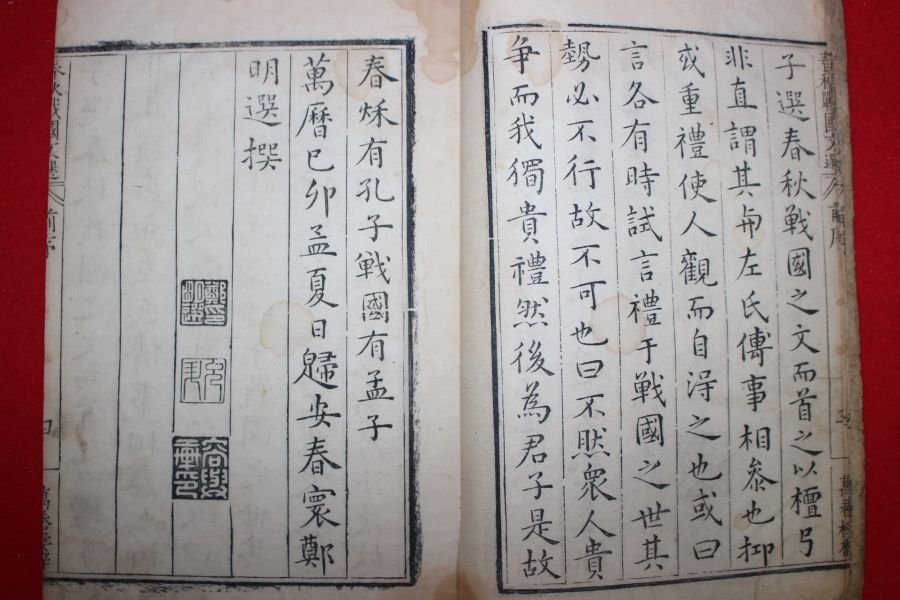 子選春秋戰國之文而首之以檀弓
非直謂其與左氏傳事相叅也抑
或重禮使人觀而自淂之也或曰
言各有時試言禮于戰國之世其
勢必不行故不可也曰不然衆人貴
争而我獨貴禮然後為君子是故
春秌有孔子戰國有孟子
萬曆己卯孟夏日歸安春寰鄭
明選撰
春秋戰國文選
前序
四